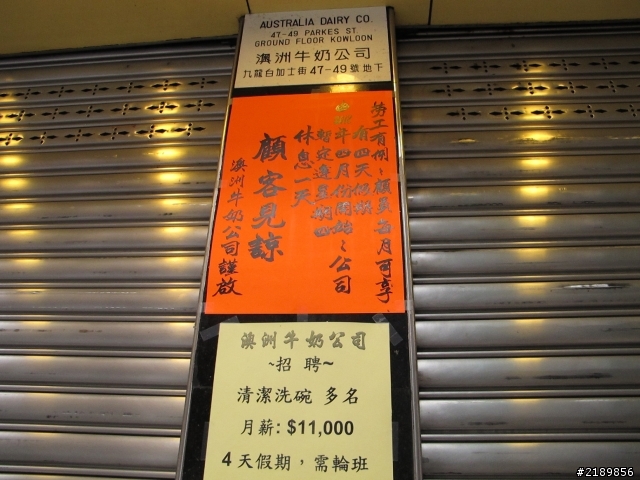 AUSTRALIA DAIRY CO.
47-49 PARKES ST.
GROUND FLOOR KOWLOON
澳洲牛奶公司
九龍白加士街47-49號地下
勞工有例、顧員每月可享
有四天假期
牛四月份開始、公司
暫定逢星期四
休息一天
顧客見諒
澳洲牛奶公司謹啟
澳洲牛奶公司
~招 聘~
清潔洗碗 多名
月薪: $11,000
4天假期，需輪班
#2189856